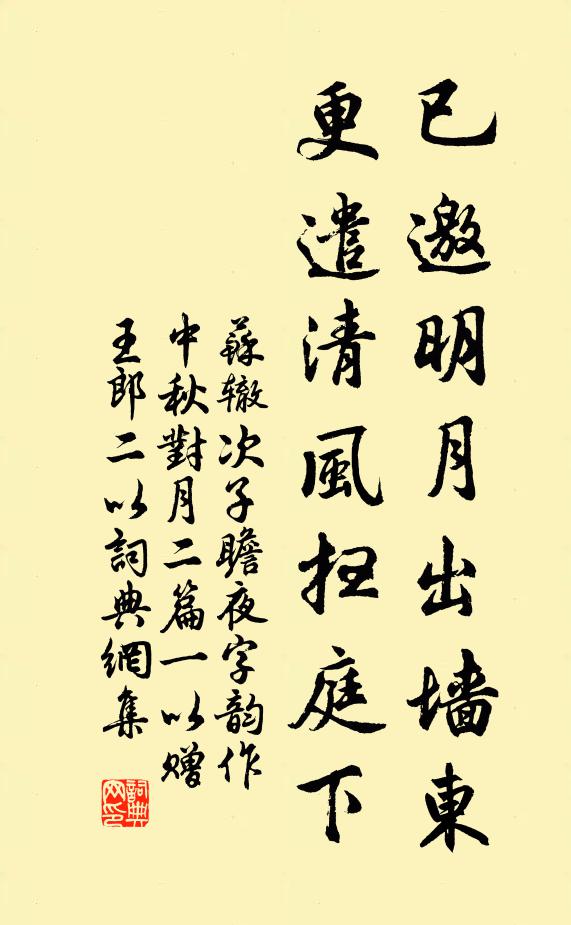 已邀明月出墙東
更遣清風扫庭下
蘇辙次子瞻夜字韵作
中秋對月二篇一以赠
王郎二以詞典網集
詞典
网印